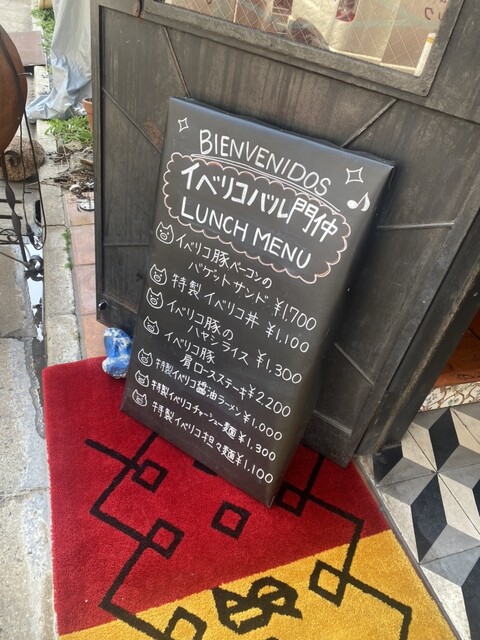 BIENVENIDOS
イベリコバル門仲
LUNCH MENU
イベリコ豚ベーコンの
バゲットサンド ¥1,700
特製イベリコ丼 ¥1,100
イベリコ豚の
ハヤシライス ¥1,300
イベリコ豚
肩ロースステーキ ¥2,200
特製イベリコ醤油ラーメン ¥1,000
特製イベリコチャーシュー麺 ¥1,300
特製イベリコ担々麺 ¥1,100